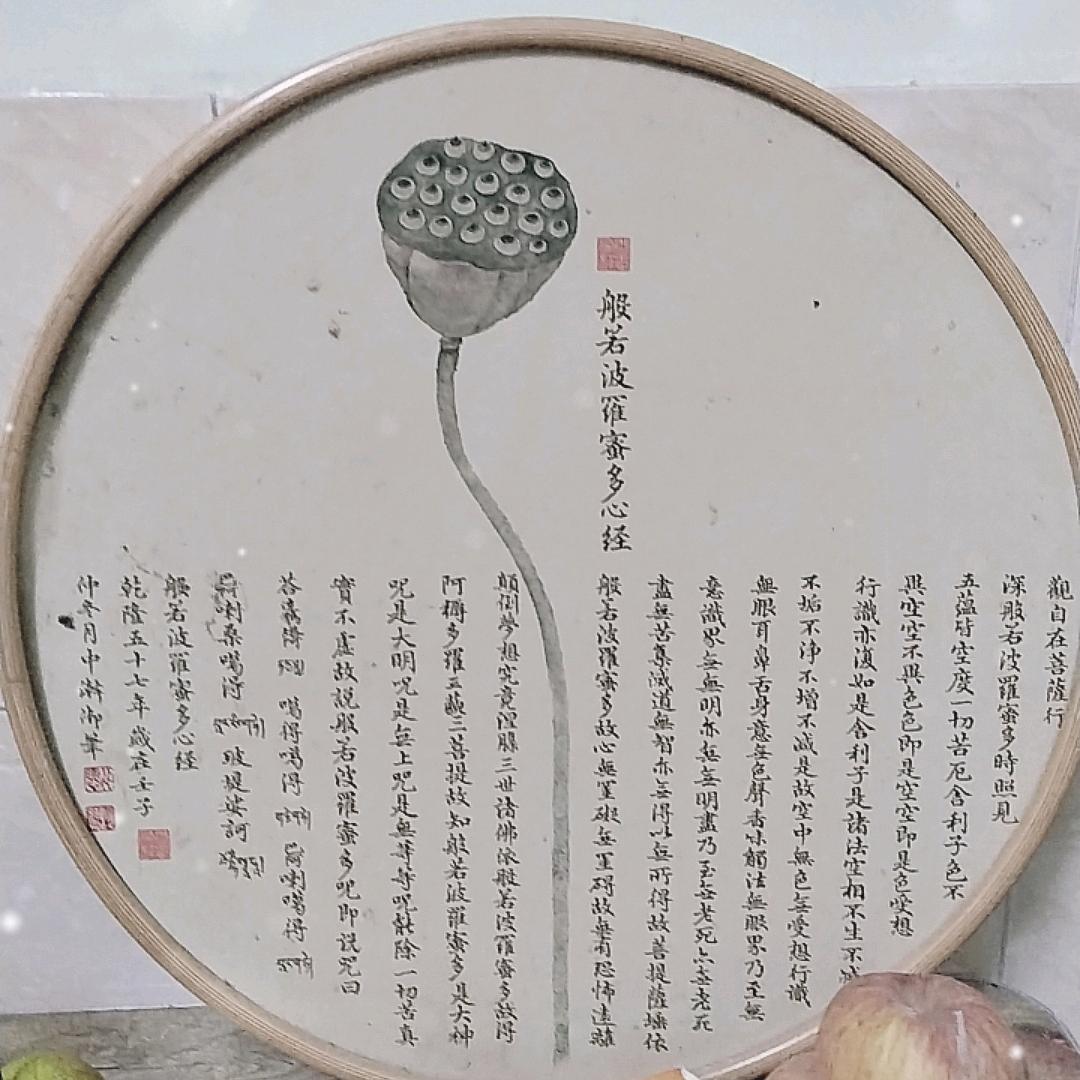 般若波羅蜜多心経
觀自在菩薩行
深般若波羅蜜多時照見
五蘊皆空度一切苦厄舍利子色不
異空空不異色色即是空空即是色受想
行識亦復如是舍利子是諸法空相不生不滅
不垢不淨不增不減是故空中無色無受想行識
無眼耳鼻舌身意無色聲香味觸法無眼界乃至無
意識界無無明亦無無明盡乃至無老死亦無老死
盡無苦集滅道無智亦無得以無所得故菩提薩埵依
般若波羅蜜多故心無罣礙無罣碍故無有恐怖遠離
顛倒夢想究竟涅槃三世諸佛依般若波羅蜜多故得
阿耨多羅三藐三菩提故知般若波羅蜜多是大神
咒是大明咒是無上咒是無等等咒能除一切苦真
實不虛故説般若波羅蜜多咒即説咒曰
噶得噶得 喇噶得
喇桑噶得 提娑訶
般若波羅蜜多心経
乾隆五十七年歲在壬子
仲冬月中澣御筆